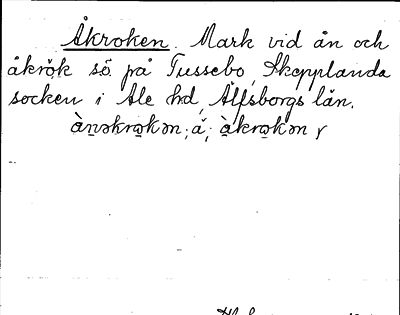 Åkroken. Mark vid ån och
åkrök sö på Tussebo, Skepplanda
socken i Ale hd, Älfsborgs län.
ànəkrok̬ən; å; àkrok̬ən r